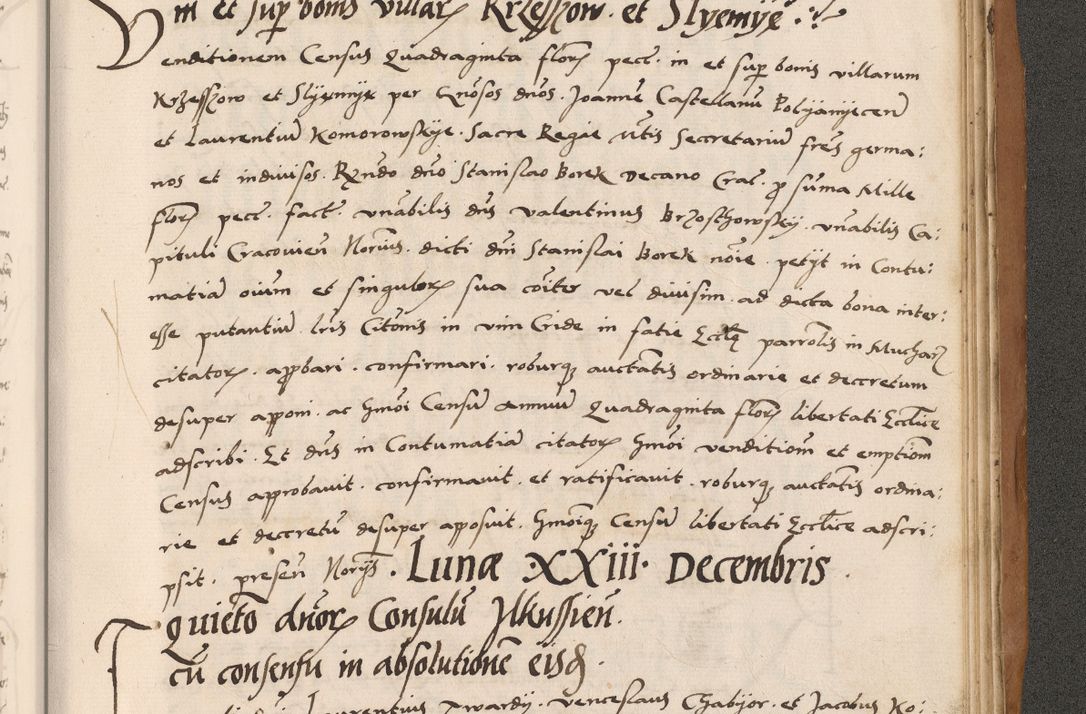 in et sup bonis villaꝝ Krzesszow. et Slyemye
enditionem Census Quadraginta floꝝ pecc. in et sup bonis villarum
Krzesszow et Slyemye per Gnosos dnos. Joannē Castellanū Polyanyecenͤ
et Laurentiū Komorowskye. Sacre Regie Mtis Secretariū fres germa:
nos et indiuisos. Rndo dno Stanislao Borek Decano Crac. ꝓ suma Mille
floꝝ pecc. fact. vnabilis dns valentinus Brzosthowsky. vnabilis Ca:
pituli Cracovien̄ Norius. dicti dni Stanislai Borek noie. petyt in Contu:
matiā oium et singuloꝝ sua coiter vel diuisim. ad dicta bona inter:
esse putantiū. lris Citōnis in vim Cride in fatie Ecclē parrolis in Mucharz
citatoꝝ. approbari. confirmari. roburqꝫ auctatis ordinarie et decretum
desuper apponi. ac hmoi Censū annuū Quadraginta floꝝ libertati Ecclice
adscribi. Et dns in Contumatiā citatoꝝ hmoi venditiom et emptiom
Census approbauit. confirmauit. et ratificauit. roburqꝫ auctatis ordina:
rie et decretū desuper apposuit. hmoiqꝫ Censū libertati Ecclice adscri:
psit. presen̄ Norijs. Lunæ XXIII. Decembris.
Quieto dnoꝝ Consulū Ilkussien̄.
cū consensu in absolutionē eisd.
Laurentius Twardy. venceslaus Chabyor. et Jacobus Ko: